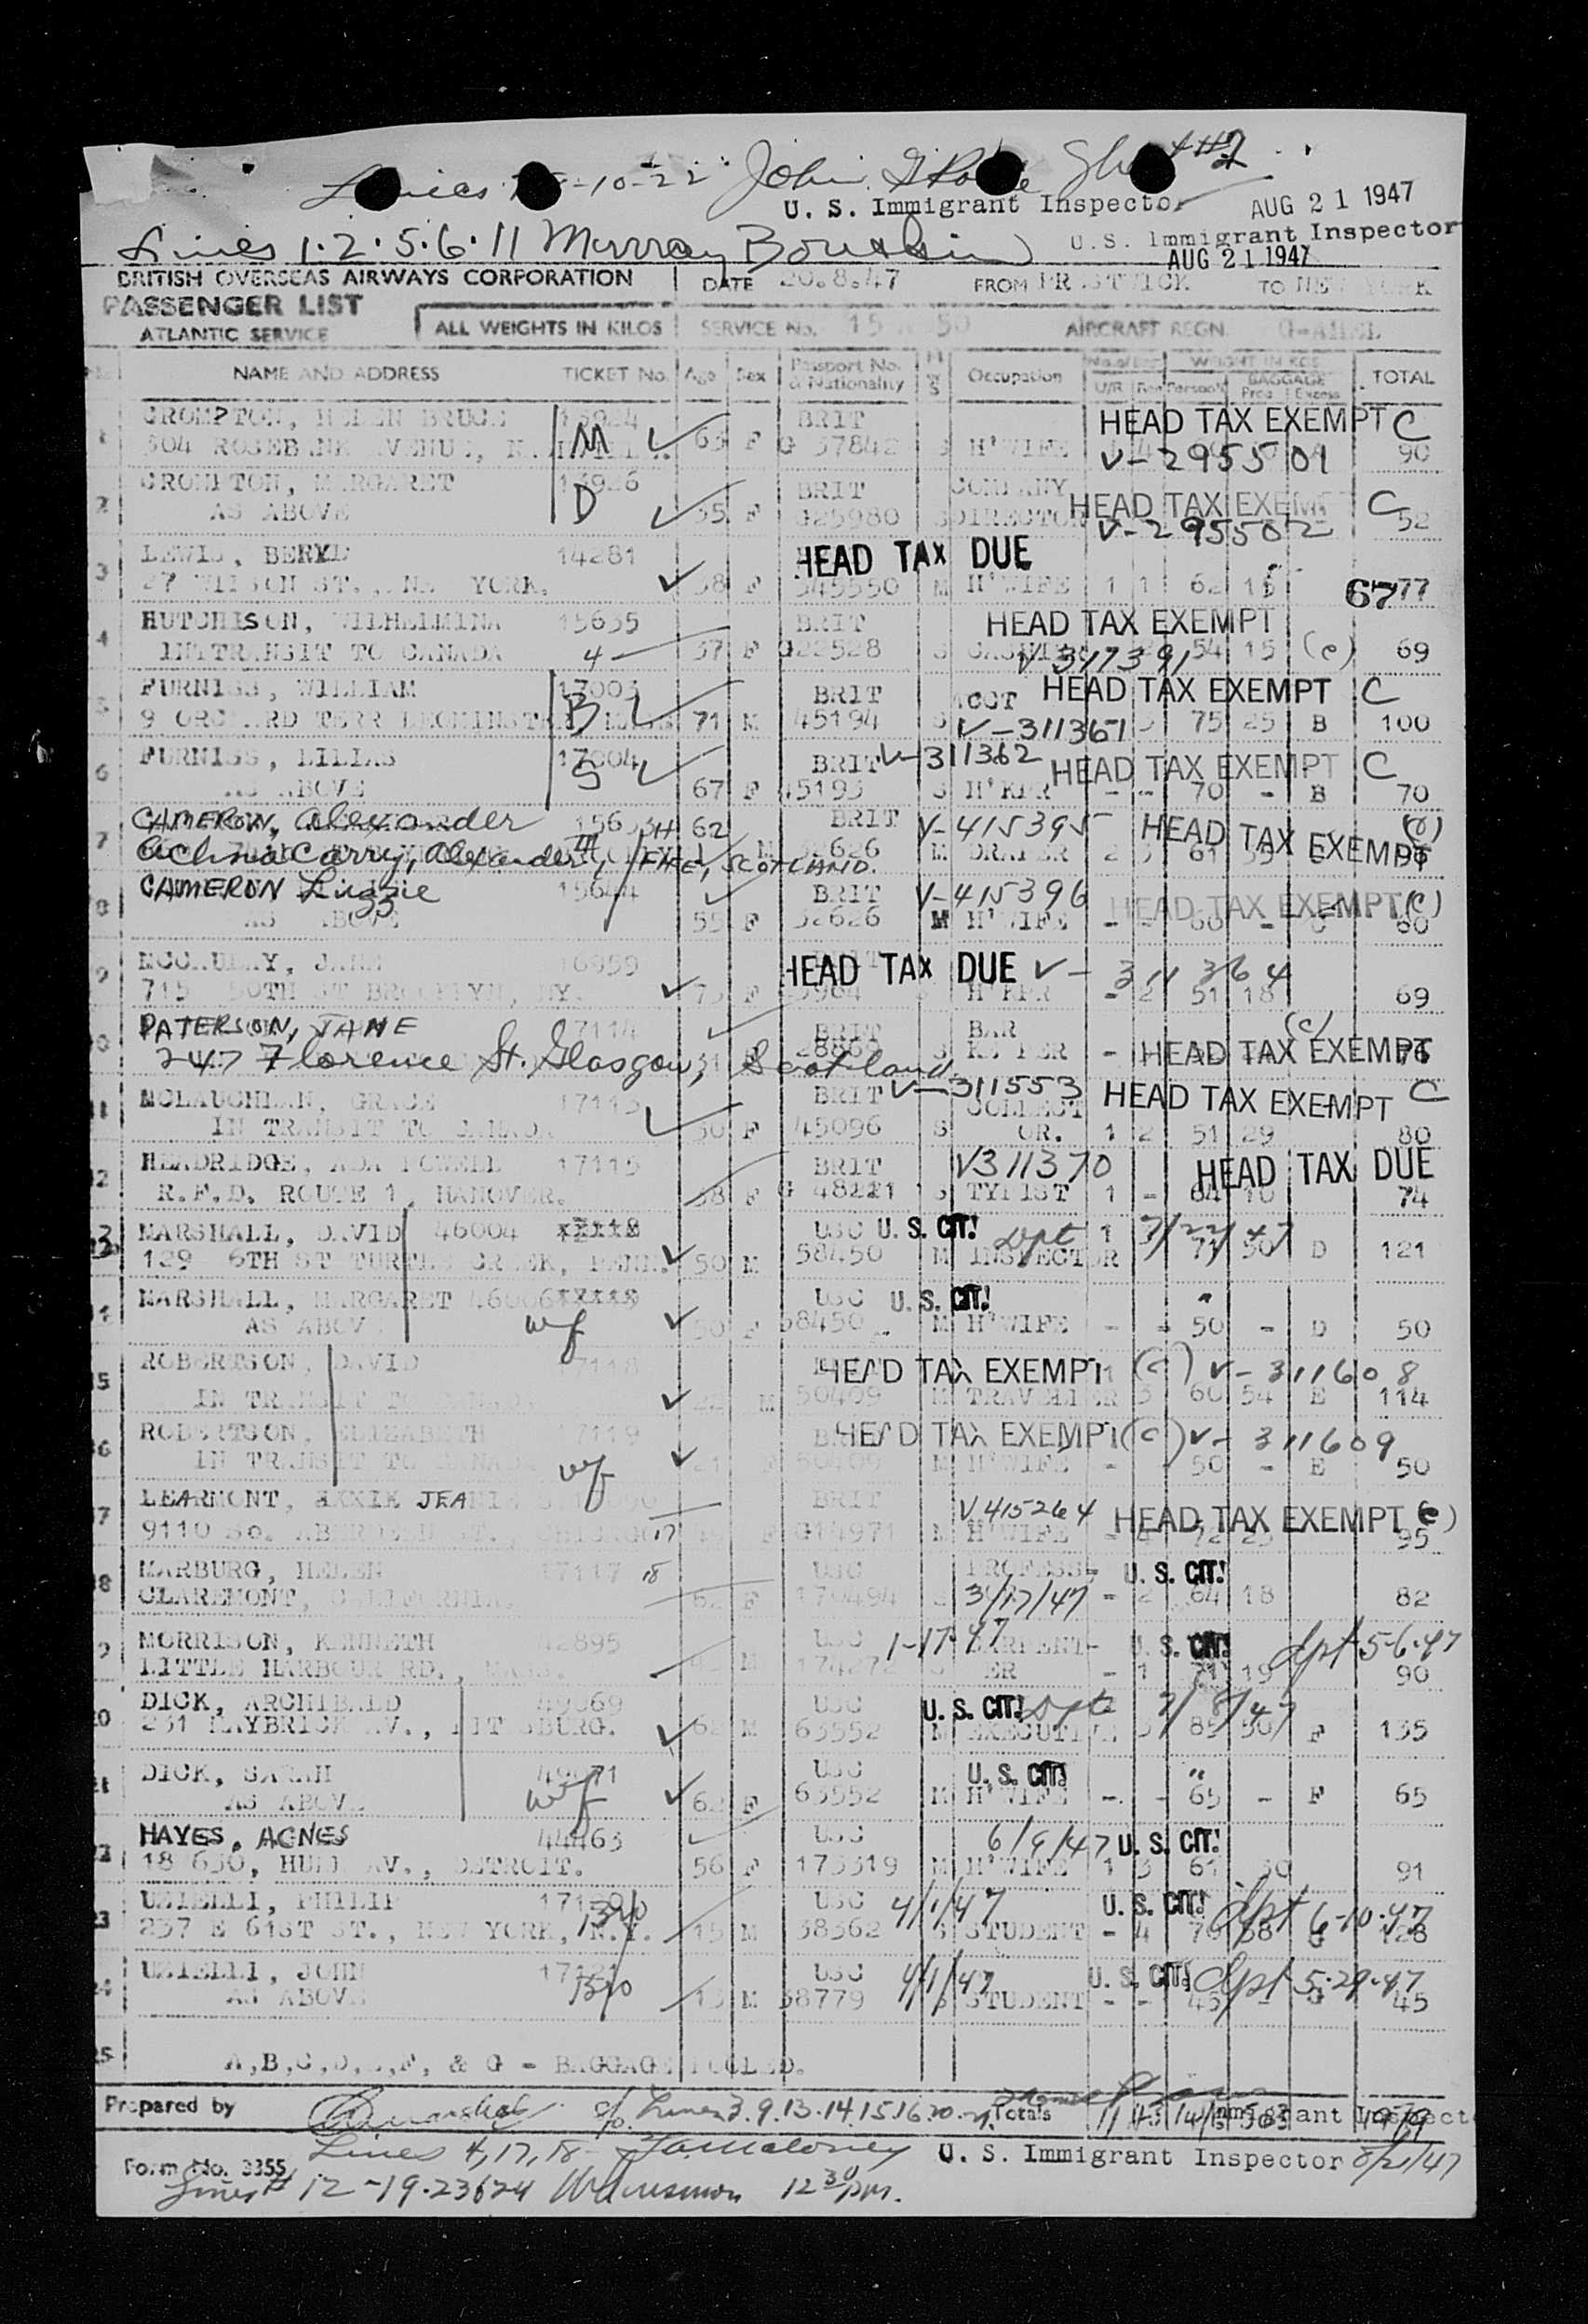 John
U. S. Immigrant Inspector AUG 21 1947
Lines 1.2.5.6.11 Murray U.S. Immigrant Inspector
AUG 21 1947
BRITISH OVERSEAS AIRWAYS CORPORATION DATE 20.8.47 FROM PRESTWICK TO NEW YORK
PASSENGER LIST
ATLANTIC SERVICE ALL WEIGHTS IN KILOS SERVICE No. 15 50 AIRCRAFT REGN.
NAME AND ADDRESS TICKET No. Age Sex Passport No. & Nationality Occupation U/R WEIGHT IN KGS BAGGAGE TOTAL
CROMPTON, HELEN BRUCE BRIT HEAD TAX EXEMPT C
1 304 ROSEBANK AVENUE, M 63 F G 37842 S H'WIFE V-295501 90
CROMPTON, MARGARET BRIT COMPANY HEAD TAX EXEMPT C
2 AS ABOVE D 35 F G25980 S DIRECTOR V-295502 52
LEWIS, BERYL 14281 HEAD TAX DUE
3 27 WILSON ST., NEW YORK. 38 F 345550 M H'WIFE 1 1 62 15 67 77
HUTCHISON, WILHELMINA 15635 BRIT HEAD TAX EXEMPT
4 IN TRANSIT TO CANADA 4 37 F G22528 S V 317391 54 15 (c) 69
FURNISS, WILLIAM 17003 BRIT ACCT HEAD TAX EXEMPT C
5 9 ORCHARD TERR LEOMINSTER, MASS B 71 M 45194 S V-311361 75 25 B 100
FURNISS, LILIAS 17004 BRIT V-311362 HEAD TAX EXEMPT C
6 AS ABOVE S 67 F 45193 S H'KPR - - 70 - B 70
CAMERON, Alexander 62 BRIT V-415395 HEAD TAX EXEMPT
7 Achnacarry, Alexander FIFE, SCOTLAND. M DRAPER
CAMERON Lizzie 15644 BRIT V-415396 HEAD TAX EXEMPT (c)
8 AS ABOVE 55 F 32626 M H'WIFE - - 60 - C 60
MCCAULAY, JANE 16959 HEAD TAX DUE V-311364
9 715 50TH ST BROOKLYN, NY. 73 F H'KPR - 2 51 18 69
PATERSON, JANE 17114 BRIT BAR (c)
10 247 Florence St. Glasgow, Scotland. HEAD TAX EXEMPT
MCLAUCHLAN, GRACE 17113 BRIT V-311553 COLLECT HEAD TAX EXEMPT C
11 IN TRANSIT TO CANADA 30 F 45096 S OR. 1 2 51 29 80
HEADRIDGE, ADA POWELL 17115 BRIT V311370 HEAD TAX DUE
12 R.F.D. ROUTE 1, HANOVER. 38 F G 48221 S TYPIST 1 - 64 10 74
MARSHALL, DAVID 46004 USC U. S. CIT! Dpt 7/22/47
13 129 6TH ST TURTLE CREEK, PENN. 50 M 58450 M INSPECTOR 71 50 D 121
MARSHALL, MARGARET 46006 USC U. S. CIT! "
14 AS ABOVE wf 50 F 58450 M H'WIFE - - 50 - D 50
ROBERTSON, DAVID 17118 HEAD TAX EXEMPT (c) V-311608
15 IN TRANSIT TO CANADA 22 M 50409 M TRAVELLER 3 60 54 E 114
ROBERTSON, ELIZABETH 17119 HEAD TAX EXEMPT (c) V-311609
16 IN TRANSIT TO CANADA wf 21 F 50409 M H'WIFE - - 50 - E 50
LEARMONT, JEANIE BRIT V415264 HEAD TAX EXEMPT (c)
17 9110 So. ABERDEEN ST., CHICAGO 17 F G14971 M H'WIFE 95
MARBURG, HELEN 17117 18 USC PROFESS- U. S. CIT!
18 CLAREMONT, CALIFORNIA 62 F 170494 S 3/17/47 - 2 64 18 82
MORRISON, KENNETH 42895 USC 1-17-47 CARPENT- U. S. CIT! dpt 5-6-47
19 LITTLE HARBOUR RD., MASS. M 174272 S ER - 1 71 19 90
DICK, ARCHIBALD 49069 USC U. S. CIT! Dpt 7/8/47
20 231 MAYBRICK AV., PITTSBURG. 62 M 63552 M EXECUTIVE 3 85 50 F 135
DICK, SARAH 49071 USC U. S. CIT! "
21 AS ABOVE wf 62 F 63552 M H'WIFE - - 65 - F 65
HAYES, AGNES 44463 USC 6/9/47 U. S. CIT!
22 18 630, HULL AV., DETROIT. 56 F 173319 M H'WIFE 1 3 61 30 91
UZIELLI, PHILIP USC 4/1/47 U. S. CIT! dpt 6-10-47
23 237 E 61ST ST., NEW YORK, N.Y. 15 M 38362 S STUDENT - 4 70 58 G 128
UZIELLI, JOHN 17121 USC 4/1/47 U. S. CIT! dpt 5-29-47
24 AS ABOVE 13 M 38779 S STUDENT - - 45 - G 45
25 A,B,C,D,E,F, & G - BAGGAGE POOLED.
Prepared by Lines 3.9.13.14.15.16.20.21. Totals Immigrant Inspect
Lines 4,17,18- Maloney U. S. Immigrant Inspector 8/21/47
Form No. 3355
Lines # 12-19-23 & 24 12 30 pm.